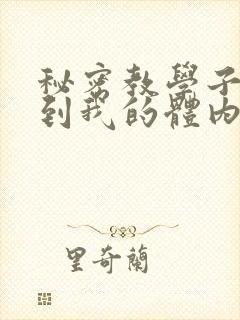 秘密教學子
到我的體內
里奇蘭